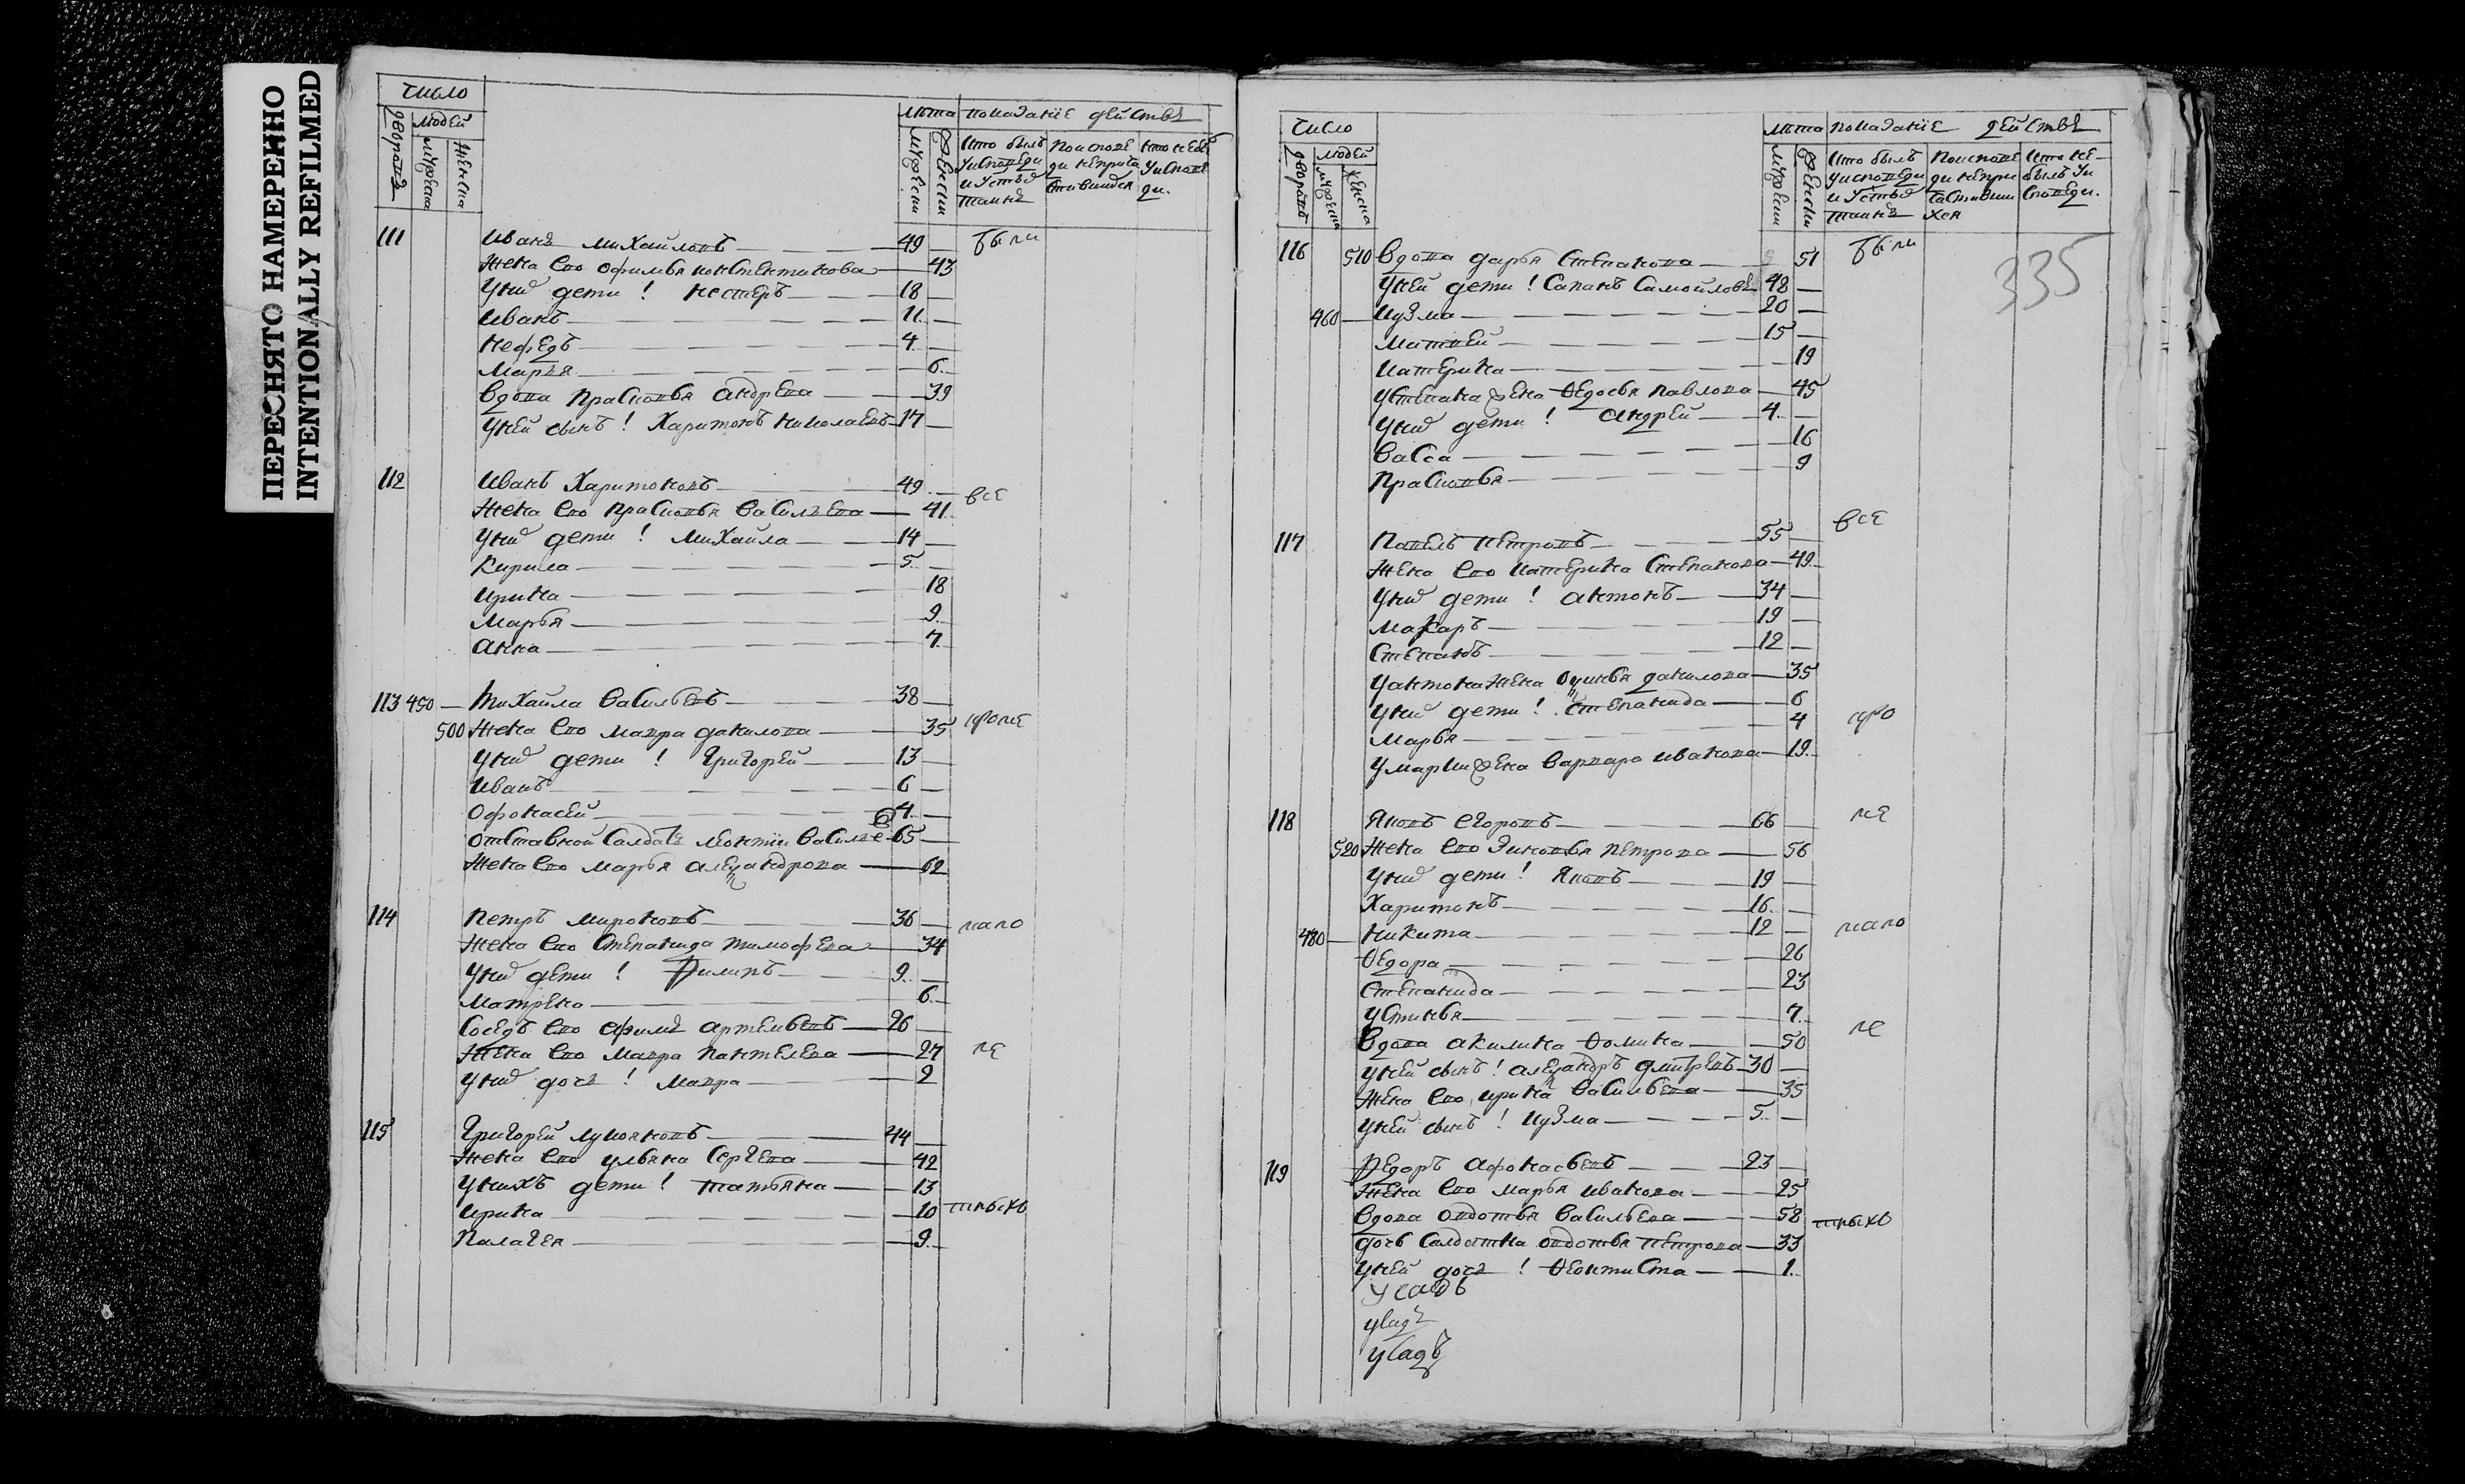 ПЕРЕСНЯТО НАМЕРЕННО
INTENTIONALLY REFILMED
Число
дворовъ
людей
мужеска
женска
лѣта
показанiе действъ
мужески
женски
кто былъ у исповеди и у стыѣ таинъ
по исповеди неприча стившихся
кто небылъ уисповеди.
111 Иванъ Михайловъ 49 были
Жена ево Офимья Констентинова 43
Уних дети ! Нестеръ 18
Иванъ 11
Нефедъ 4
Марья 6
Вдова Прасковья Андрева 39
Уней сынъ ! Харитонъ Николаевъ 17
112 Иванъ Харитоновъ 49 все
Жена ево Прасковья Васильева 41
Уних дети ! Михайла 14
Кирила 5
Ирина 18
Марья 9
Анна 7
113 450 Михайла Васильевъ 38
500 Жена ево Мавра Данилова 35 кроме
Уних дети ! Григорей 13
Иванъ 6
Офонасей 4
Отставной Салдатъ Леонтiи Василье 65
Жена ево Марья Александрова 62
114 Петръ Мироновъ 36 мало
Жена ево Степанида Тимофева 34
Уних дети ! Филипъ 9
Матрена 6
Соседъ ево Афимъ Артемьевъ 26
Жена ево Мавра Пантелева 27 ле
Уних дочь ! Мавра 2
115 Григорей Лукояновъ 44
Жена ево Ульяна Сергева 42
Унихъ дети ! Татьяна 13
Ирина 10 тныхъ
Палагея 9
Число
дворовъ
людей
мужеска
женска
лѣта
показанiе действъ
мужески
женски
кто былъ уисповеди и у стыѣ таинъ
По исповеди непри частивши хся
кто не былъ уи споведи.
335
116 510 Вдова Дарья Степанова 51 были
Уней дети ! Сапанъ Самойловъ 48
460 Кузма 20
Матвей 15
Катерина 19
Устепана жена Ѳедосья Павлова 45
Уних дети ! Андрей 4
Васса 16
Прасковья 9
117 Павелъ Петровъ 55 все
Жена ево Катерина Степанова 49
Уних дети ! Антонъ 34
Макаръ 19
Степанъ 12
Уантона жена Данилова 35
Уних дети ! Степанида 6
Марья 4 кро
Жена Варвара Иванова 19
118 Яковъ Егоровъ 66 ме
520 Жена ево Зиновья Петрова 56
Уних дети ! Яковъ 19
Харитонъ 16
480 Никита 12 мало
Ѳедора 26
Степанида 23
Устинья 7
Вдова Акилина Ѳомина 50 ле
Уней сынъ ! Александръ Дмитревъ 30
Жена ево Ирина Васильева 35
Уней сынъ ! Кузма 5
119 Федоръ Афонасьевъ 23
Жена ево Марья Иванова 25
Вдова Овдотья Васильева 58 тныхъ
Дочь Салдатка Овдотья Петрова 33
Уней дочь ! Ѳеоктиста 1
Усадъ
усадъ
усадъ